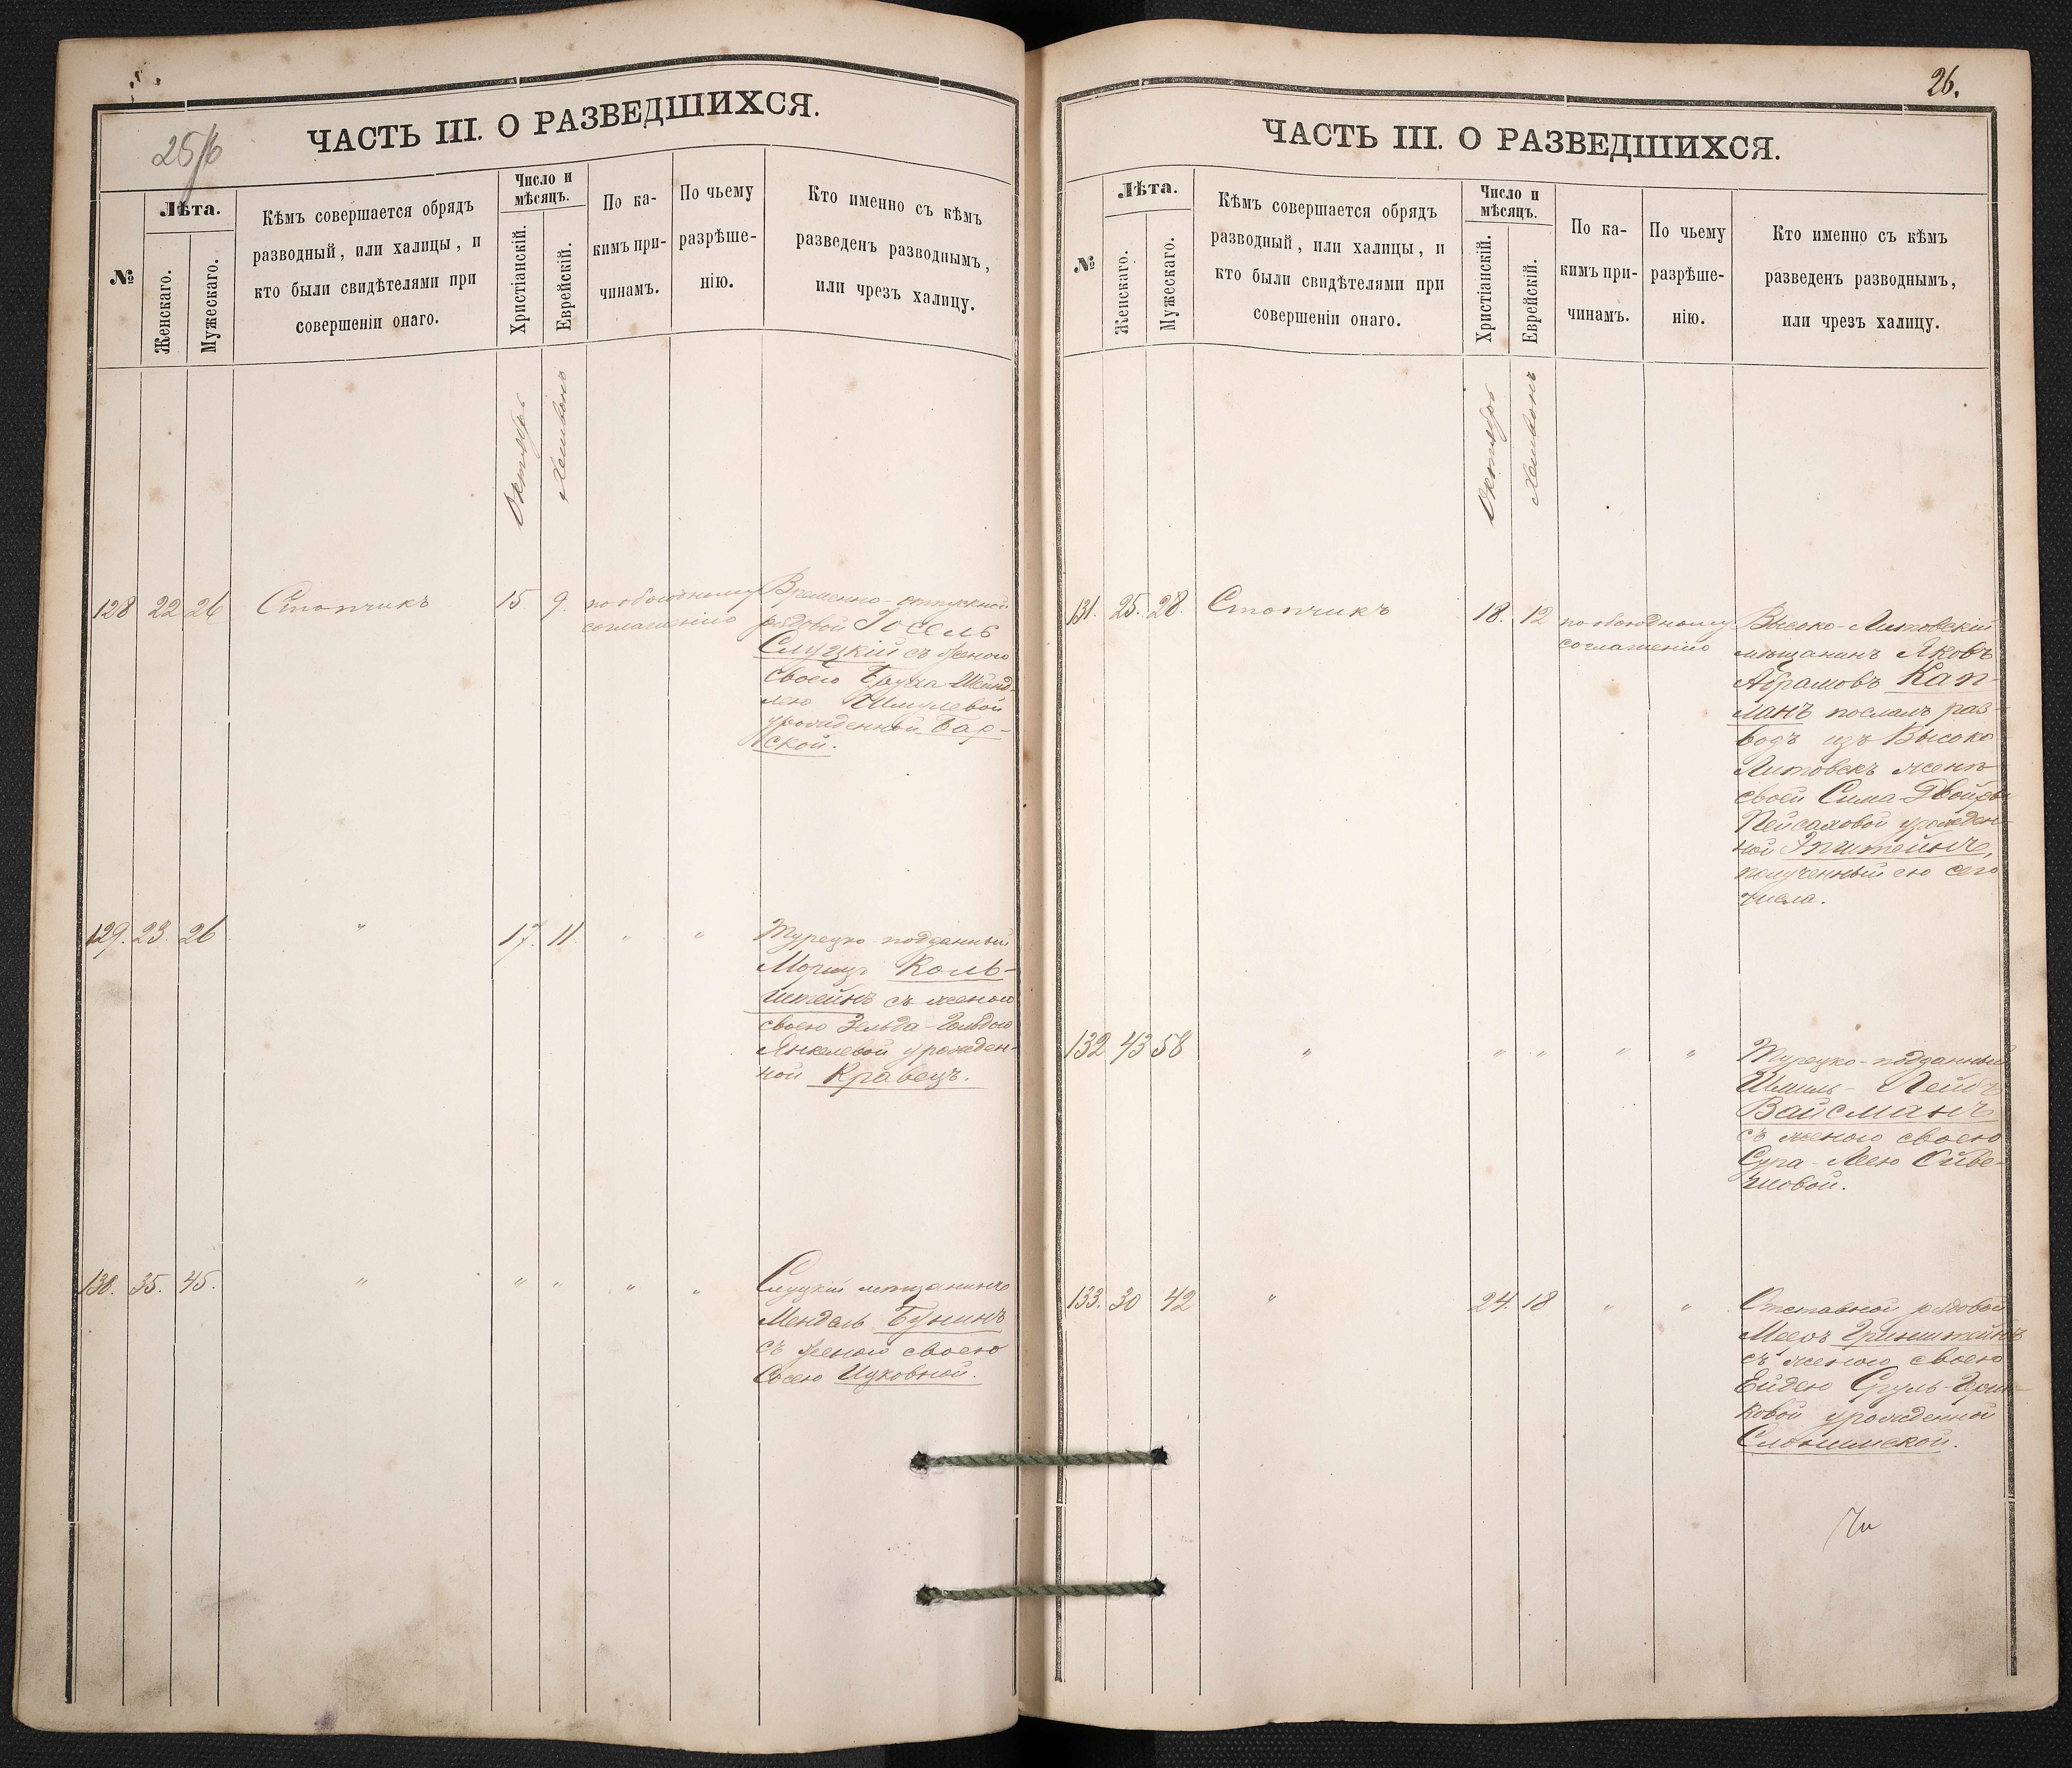 25/6
ЧАСТЬ III. О РАЗВЕДШИХСЯ.
№
Лѣта.
Женскаго.
Мужескаго.
Кѣмъ совершается обрядъ
разводный, или халицы, и
кто были свидѣтелями при
совершеніи онаго.
Число и
мѣсяцъ.
Христіанскій.
Еврейскій.
По ка-
кимъ при-
чинамъ.
По чьему
разрѣше-
нію.
Кто именно съ кѣмъ
разведенъ разводнымъ,
или чрезъ халицу.
Октябрь
Хешвонъ
128 22 26 Стопчикъ 15 9. по обоюдному
соглашенію
Временно-отпускной
рядовой Іосель
Слуцкій съ женою
своею Бруха Шейнд-
лею
урожденной Бар-
ской.
129. 23. 26 " 17. 11. " "
Турецко-подданный
Морицъ Коль-
штейнъ съ женою
своею Зельда-Гольдою
Янкелевой урожден-
ной Кравецъ.
130. 35. 45. " " " " "
Слуцкій мѣщанинъ
Мендель Бунинъ
съ женою своею
Сосею Ицковной.
26.
ЧАСТЬ III. О РАЗВЕДШИХСЯ.
№
Лѣта.
Женскаго.
Мужескаго.
Кѣмъ совершается обрядъ
разводный, или халицы, и
кто были свидѣтелями при
совершеніи онаго.
Число и
мѣсяцъ.
Христіанскій.
Еврейскій.
По ка-
кимъ при-
чинамъ.
По чьему
разрѣше-
нію.
Кто именно съ кѣмъ
разведенъ разводнымъ,
или чрезъ халицу.
Октябрь
Хешвонъ
131. 25. 28. Стопчикъ 18. 12 по обоюдному
соглашенію
Высоко-Литовскій
мѣщанинъ Яковъ
Абрамовъ Кап-
ланъ послалъ раз-
водъ изъ Высоко
Литовскъ женѣ
своей Сима-Двойрѣ
Пейсаховой урожден-
ной Эпштейнъ,
полученный ею сего
числа.
132 43 58 " " " " "
Турецко-подданный
Шмиль-Лейбъ
Вайсманъ
съ женою своею
Сура-Леею
133. 30 42 " 24. 18 " "
Отставной рядовой
Мееръ Гринштейнъ
съ женою своею
Ейдею Сруль-Герш-
ковой урожденной
Слонимской.